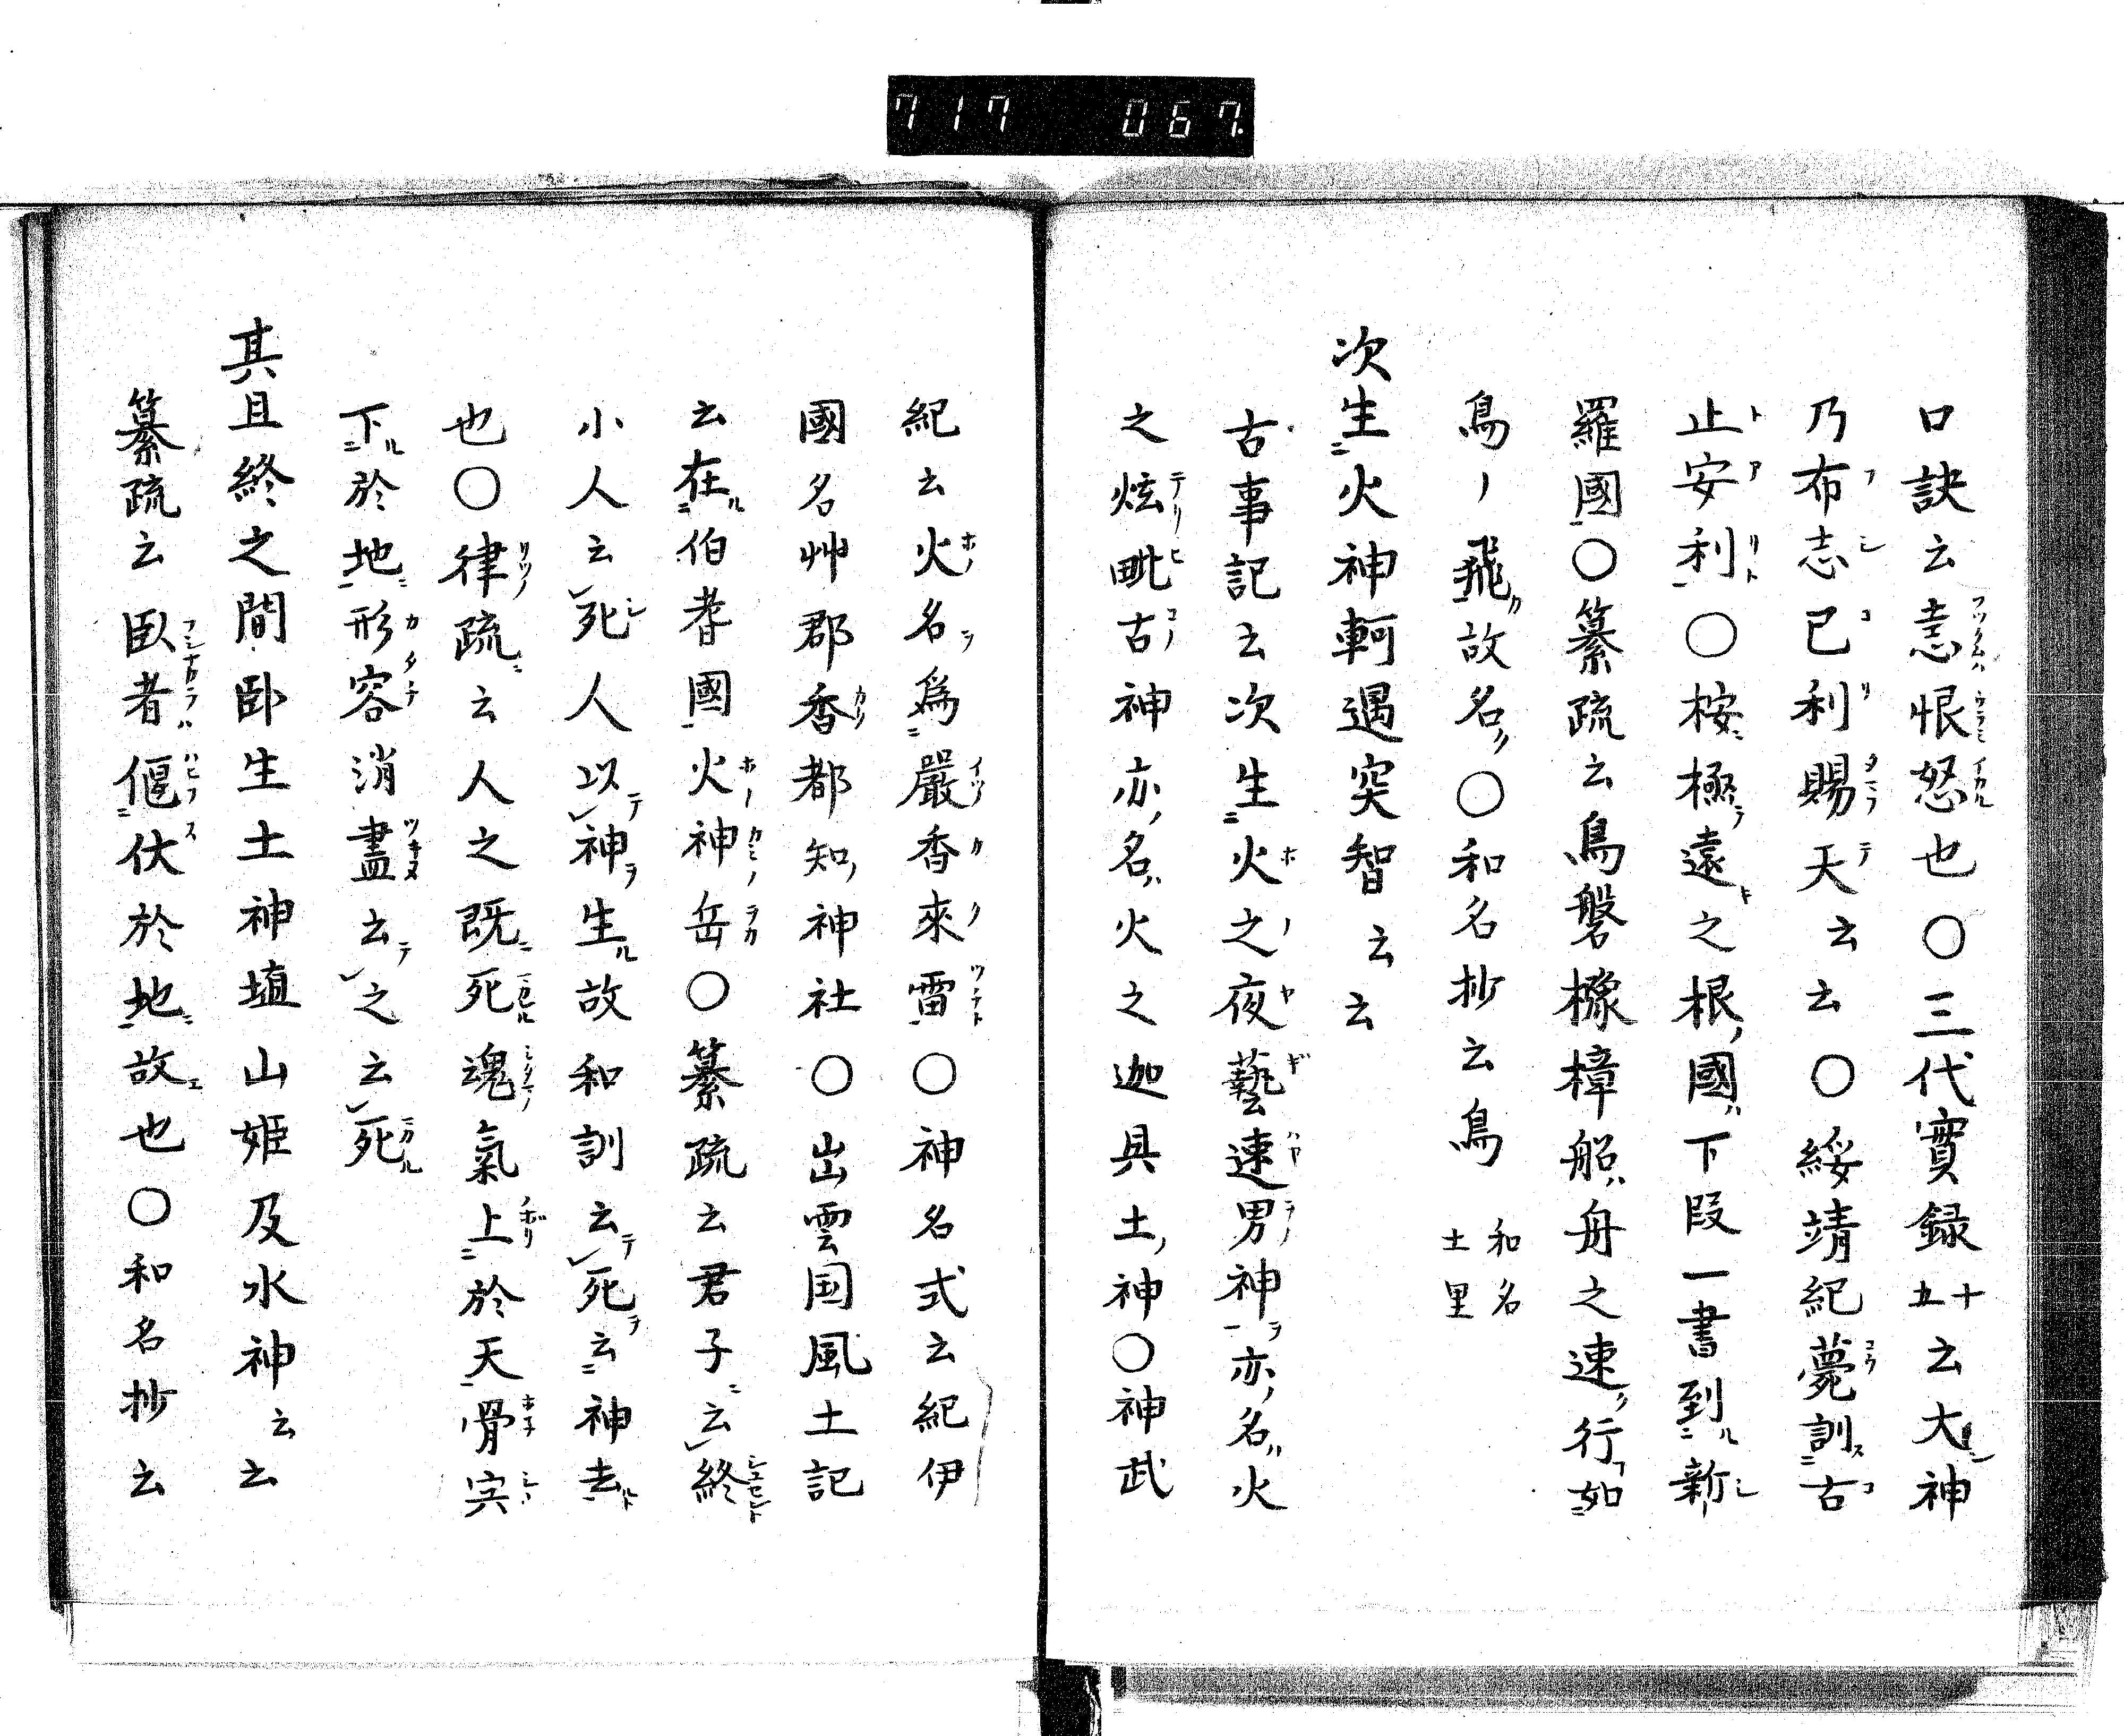 717 067
口訣云恚恨怒也〇三代實録十五云大神
乃布志己利賜天云云〇綏靖紀薨訓古
止安利〇桉極遠之根國下段一書到新
羅國〇纂疏云鳥磐櫲樟船舟之速行如
鳥ノ飛故名〇和名抄云鳥和名土里
次生火神軻遇突智云云
古事記云次生火之夜藝速男神亦名火
之炫毗古神亦名火之迦具土神〇神武
紀云火名爲嚴香來雷〇神名式云紀伊
國名艸郡香都知神社〇出雲国風土記
云在伯耆國火神岳〇纂疏云君子云終
小人云死人以神生故和訓云死云神去
也〇律疏云人之既死魂氣上於天骨宍
下於地形容消盡云之云死
其且終之間臥生土神埴山姫及水神云云
纂疏云臥者偃伏於地故也〇和名抄云